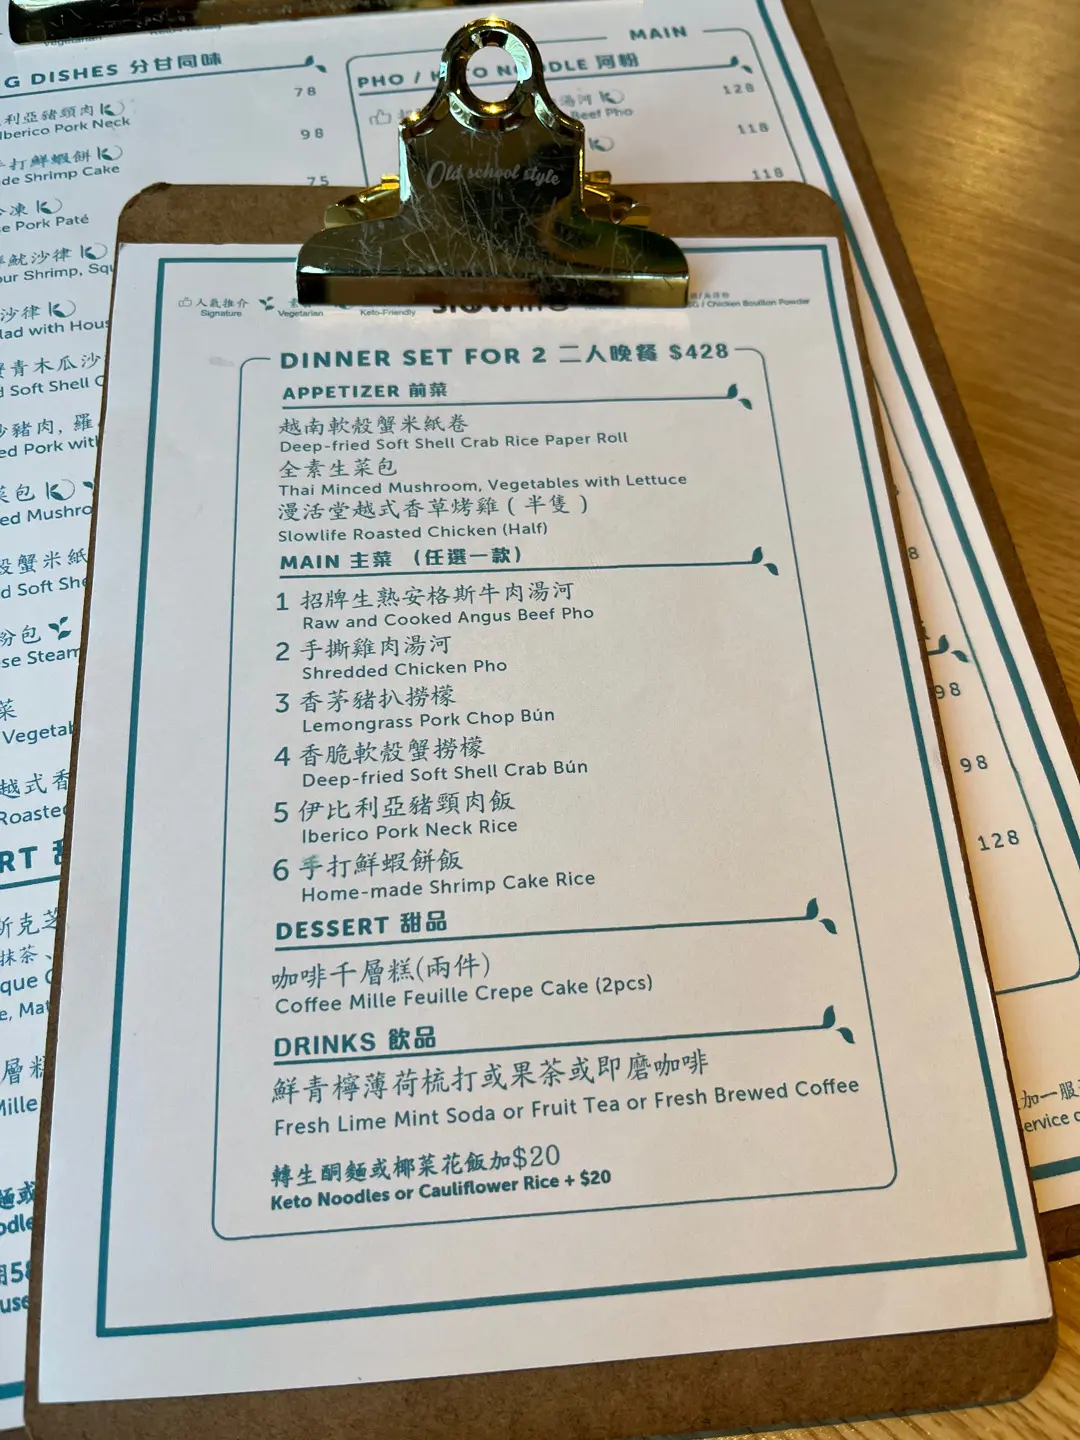 G DISHES 分甘同味
78
利亞豬頸肉
Iberico Pork Neck
98
手打鮮蝦餅
de Shrimp Cake
75
冷凍
e Pork Paté
鮮魷沙律
our Shrimp, Squ
沙律
lad with Hous
青木瓜沙
d Soft Shell C
豬肉, 羅
ed Pork with
菜包
ed Mushro
殼蟹米紙
d Soft She
粉包
se Steam
菜
Vegetab
越式香
Roasted
RT 甜
斯克芝
抹茶、
que C
e, Mat
層糕
Mille
麵或
odle
用58
use
MAIN
PHO / KETO NOODLE 河粉
128
湯河
Beef Pho
118
118
8
98
98
128
加一服
ervice c
Old school style
人氣推介
Signature
Vegetarian
Keto-Friendly
/ Chicken Bouillon Powder
DINNER SET FOR 2 二人晚餐 $428
APPETIZER 前菜
越南軟殼蟹米紙卷
Deep-fried Soft Shell Crab Rice Paper Roll
全素生菜包
Thai Minced Mushroom, Vegetables with Lettuce
漫活堂越式香草烤雞 ( 半隻 )
Slowlife Roasted Chicken (Half)
MAIN 主菜 （任選一款）
1 招牌生熟安格斯牛肉湯河
Raw and Cooked Angus Beef Pho
2 手撕雞肉湯河
Shredded Chicken Pho
3 香茅豬扒撈檬
Lemongrass Pork Chop Bún
4 香脆軟殼蟹撈檬
Deep-fried Soft Shell Crab Bún
5 伊比利亞豬頸肉飯
Iberico Pork Neck Rice
6 手打鮮蝦餅飯
Home-made Shrimp Cake Rice
DESSERT 甜品
咖啡千層糕(兩件)
Coffee Mille Feuille Crepe Cake (2pcs)
DRINKS 飲品
鮮青檸薄荷梳打或果茶或即磨咖啡
Fresh Lime Mint Soda or Fruit Tea or Fresh Brewed Coffee
轉生酮麵或椰菜花飯加$20
Keto Noodles or Cauliflower Rice + $20